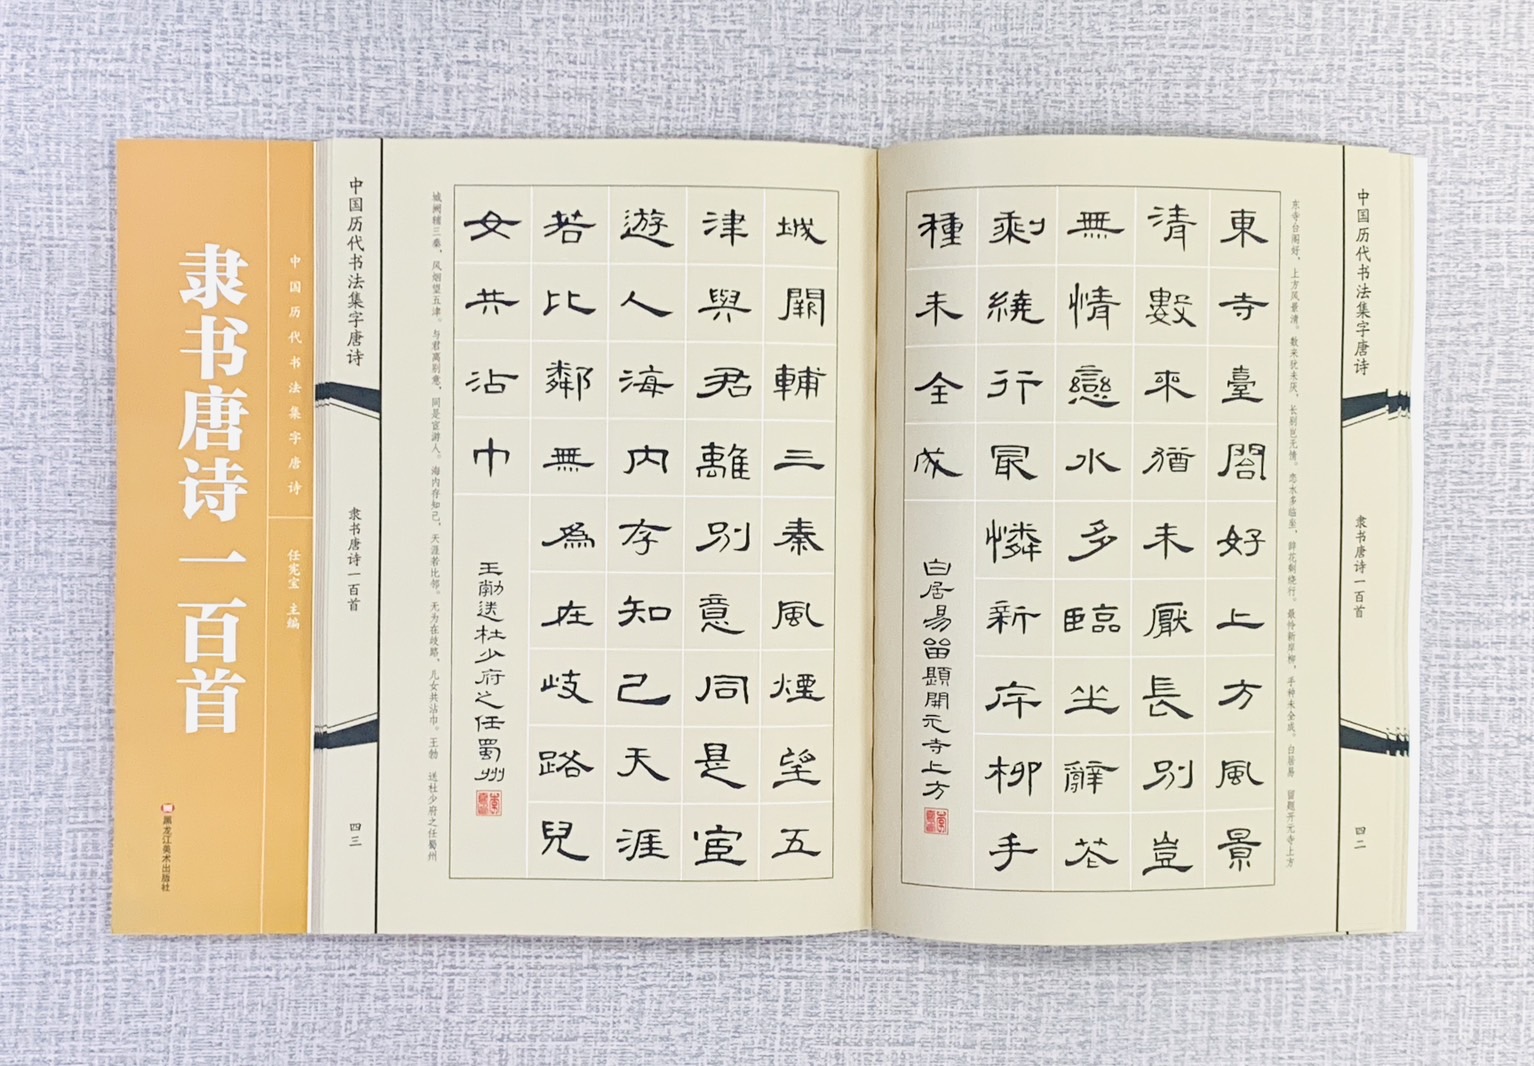 中国历代书法集字唐诗
隶书唐诗一百首
四二
东寺台阁好，上方风景清。数来犹未厌，长别岂无情。恋水多临坐，辞花剩绕行。最怜新岸柳，手种未全成。白居易 留题开元寺上方
東寺臺閤好上方風景
清數來猶未厭長別豈
無情戀水多臨坐辭花
剩繞行冣憐新岸柳手
種未全成
白居易留題開元寺上方
城闕輔三秦風煙望五
津與君離別意同是宦
遊人海内存知己天涯
若比鄰無為在岐路兒
女共沾巾
王勃送杜少府之任蜀州
城阙辅三秦，风烟望五津。与君离别意，同是宦游人。海内存知己，天涯若比邻。无为在歧路，儿女共沾巾。王勃 送杜少府之任蜀州
中国历代书法集字唐诗
隶书唐诗一百首
四三
中国历代书法集字唐诗
任宪宝 主编
隶书唐诗一百首
黑龙江美术出版社